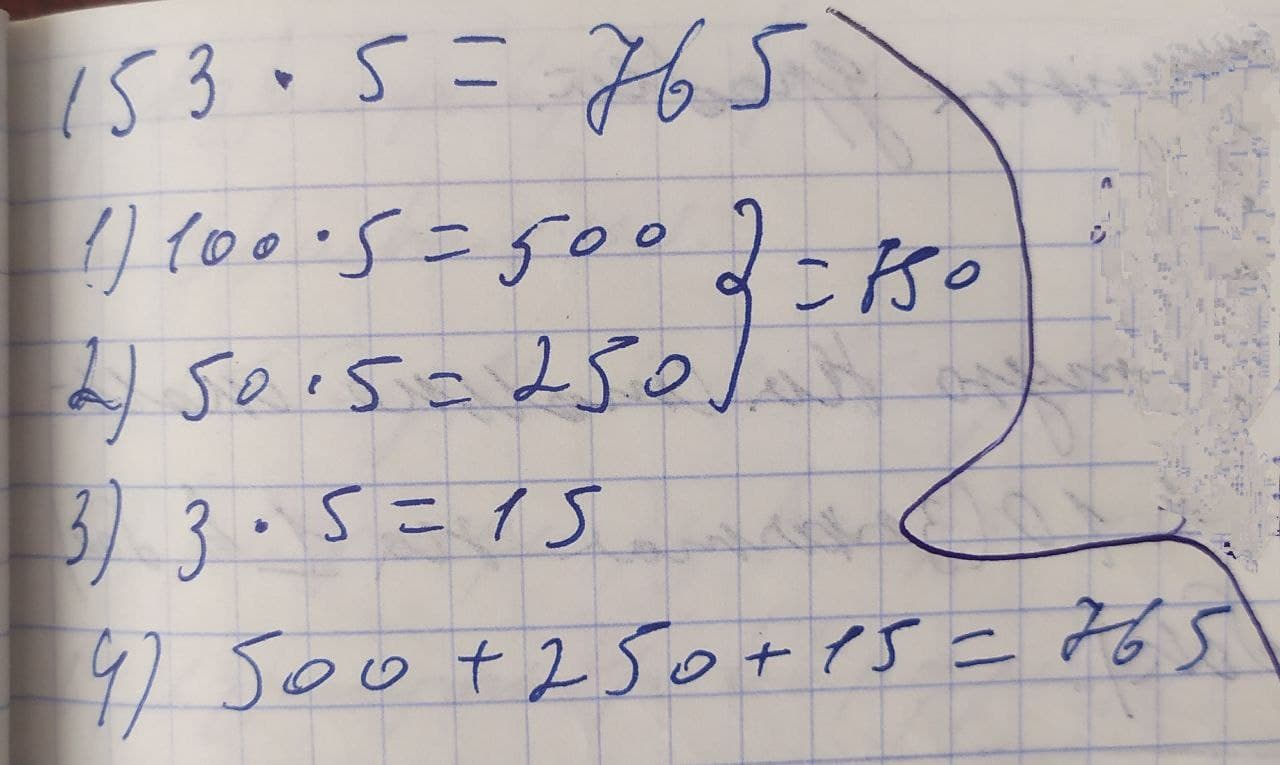 153 · 5 = 765
1) 100 · 5 = 500
2) 50 · 5 = 250 } = 750
3) 3 · 5 = 15
4) 500 + 250 + 15 = 765